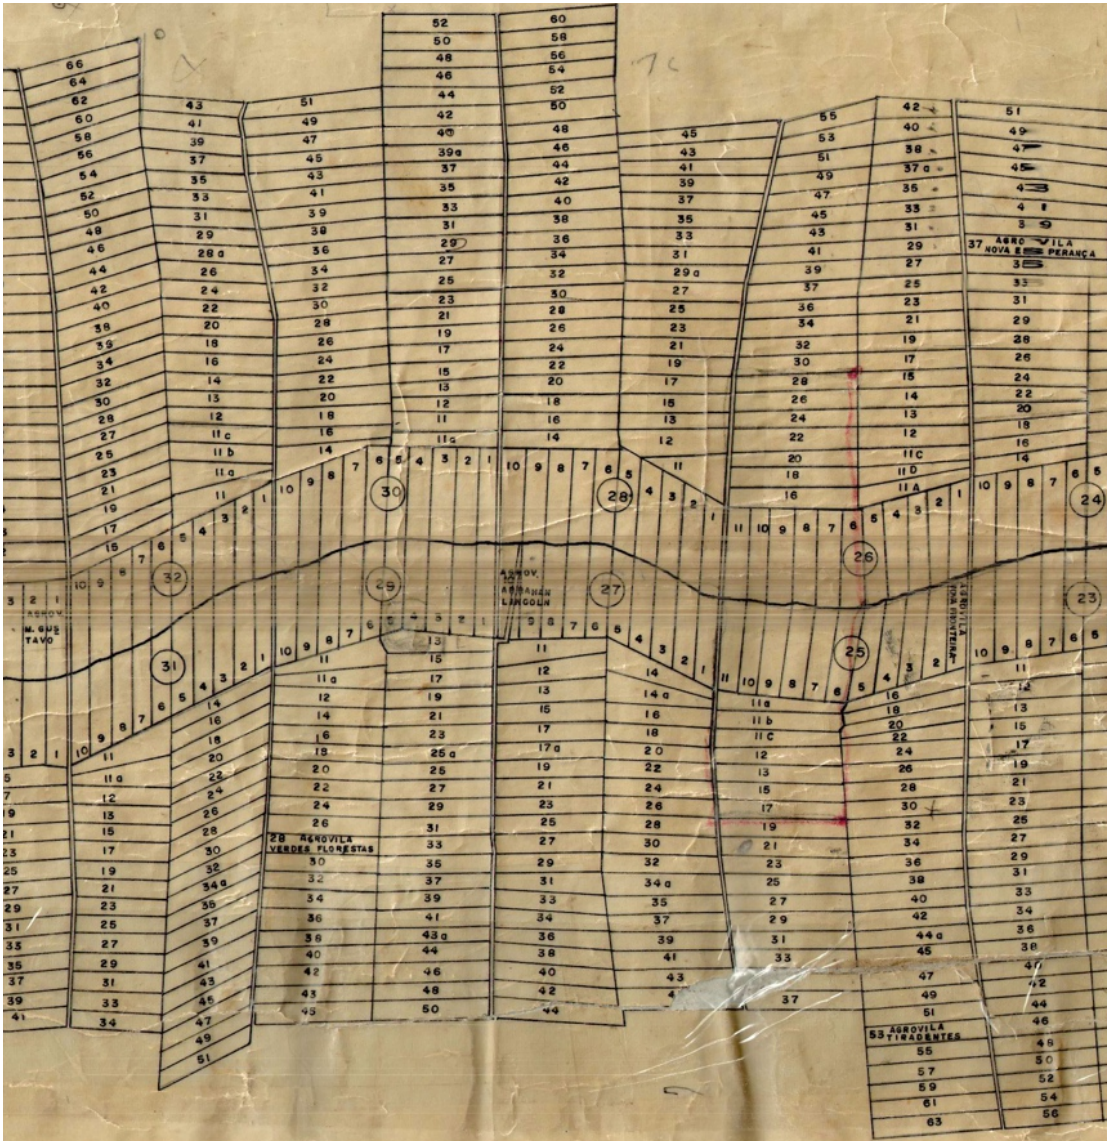 66
64
62
60
58
56
54
52
50
48
46
44
42
40
38
34
32
30
28
27
25
23
21
19
17
15
43
41
39
37
35
33
31
29
28a
26
24
22
20
18
16
14
13
12
11c
11b
11a
11
51
49
47
45
43
41
39
38
36
34
32
30
28
26
24
22
20
18
16
14
52
50
48
46
44
42
40
39a
37
35
33
31
29
27
25
23
21
19
17
15
13
12
11
60
58
56
54
52
50
48
46
44
42
40
38
36
34
32
30
28
26
24
22
20
18
16
14
45
43
41
39
37
35
33
31
29a
27
25
23
21
19
17
15
13
12
11
55
53
51
49
47
45
43
41
39
37
36
34
32
30
28
26
24
22
20
18
16
42
40
38
37a
35
33
31
29
27
25
23
21
19
17
15
14
13
12
11C
11D
11A
51
49
47
45
43
41
39
37 AGROVILA
NOVA ESPERANÇA
35
33
31
29
28
26
24
22
20
18
16
14
3 2 1
10 9 8 7 6 5 4 3 2 1
10 9 8 7 6 5 4 3 2 1
10 9 8 7 6 5 4 3 2 1
11 10 9 8 7 6 5 4 3 2 1
10 9 8 7 6 5
32
30
28
26
24
AGROV.
M. GUS
TAVO
AGROV.
ABRAHAN
LINCOLN
AGROVILA
31
29
27
25
23
3 2 1
10 9 8 7 6 5 4 3 2 1
10 9 8 7 6 5 4 3 2 1
9 8 7 6 5 4 3 2 1
11 10 9 8 7 6 5 4 3 2
10 9 8 7 6 5
5
7
19
21
23
25
27
29
31
33
35
37
39
41
11
11a
12
13
15
17
19
21
23
25
27
29
31
33
34
14
16
18
20
22
24
26
28
30
32
34a
35
37
39
41
43
45
47
49
51
11
11a
12
14
16
18
20
22
24
26
28 AGROVILA
VERDES FLORESTAS
30
32
34
36
38
40
42
43
45
13
15
17
19
21
23
25a
25
27
29
31
33
35
37
39
41
43a
44
46
48
50
11
12
13
15
17
17a
19
21
23
25
27
29
31
33
34
36
38
40
42
44
14
14a
16
18
20
22
24
26
28
30
32
34a
35
37
39
41
43
11a
11b
11c
12
13
15
17
19
21
23
25
27
29
31
33
37
16
18
20
22
24
26
28
30
32
34
36
38
40
42
44a
45
47
49
51
53 AGROVILA
TIRADENTES
55
57
59
61
63
11
12
13
15
17
19
21
23
25
27
29
31
33
34
36
38
42
44
46
48
50
52
54
56